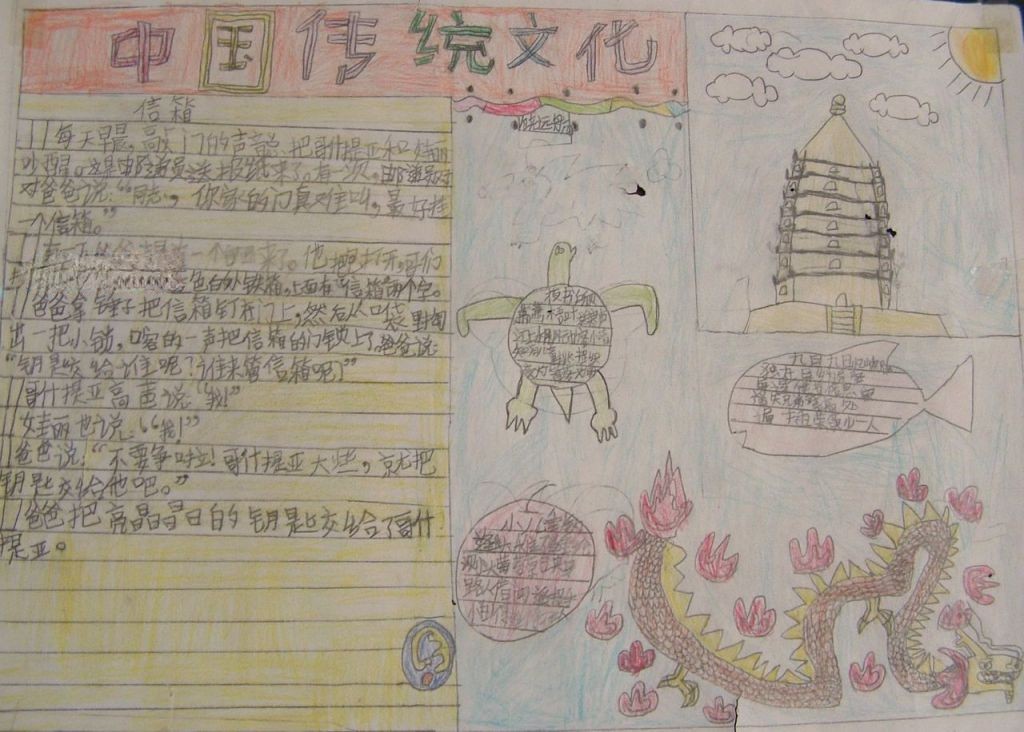 中国传统文化
信箱
每天早晨,敲门的声音总把哥什提亚和娃丽
吵醒。这是邮递员送报纸来了。有一次,邮递员
对爸爸说:“同志,你家的门真难叫,最好挂
一个信箱。”
来了。他把打开,哥们
色的小铁箱,上面有“信箱”两个字。
爸爸拿锤子把信箱钉在门上,然后从口袋里掏
出一把小锁,啪的一声把信箱的门锁上了,爸爸说:
“钥匙交给谁呢?谁来管信箱呢?”
哥什提亚高声说:“我!”
娃丽也说:“我!”
爸爸说:“不要争啦!哥什提亚大些,就把
钥匙交给他吧。”
爸爸把亮晶晶的钥匙交给了哥什
提亚。
夜书所见
萧萧
江上
知有儿童挑促织
九月九日忆
独在异乡
每逢佳节倍思
遥知兄弟登高处
遍插茱萸少一人
小儿垂钓
路人借问遥招手